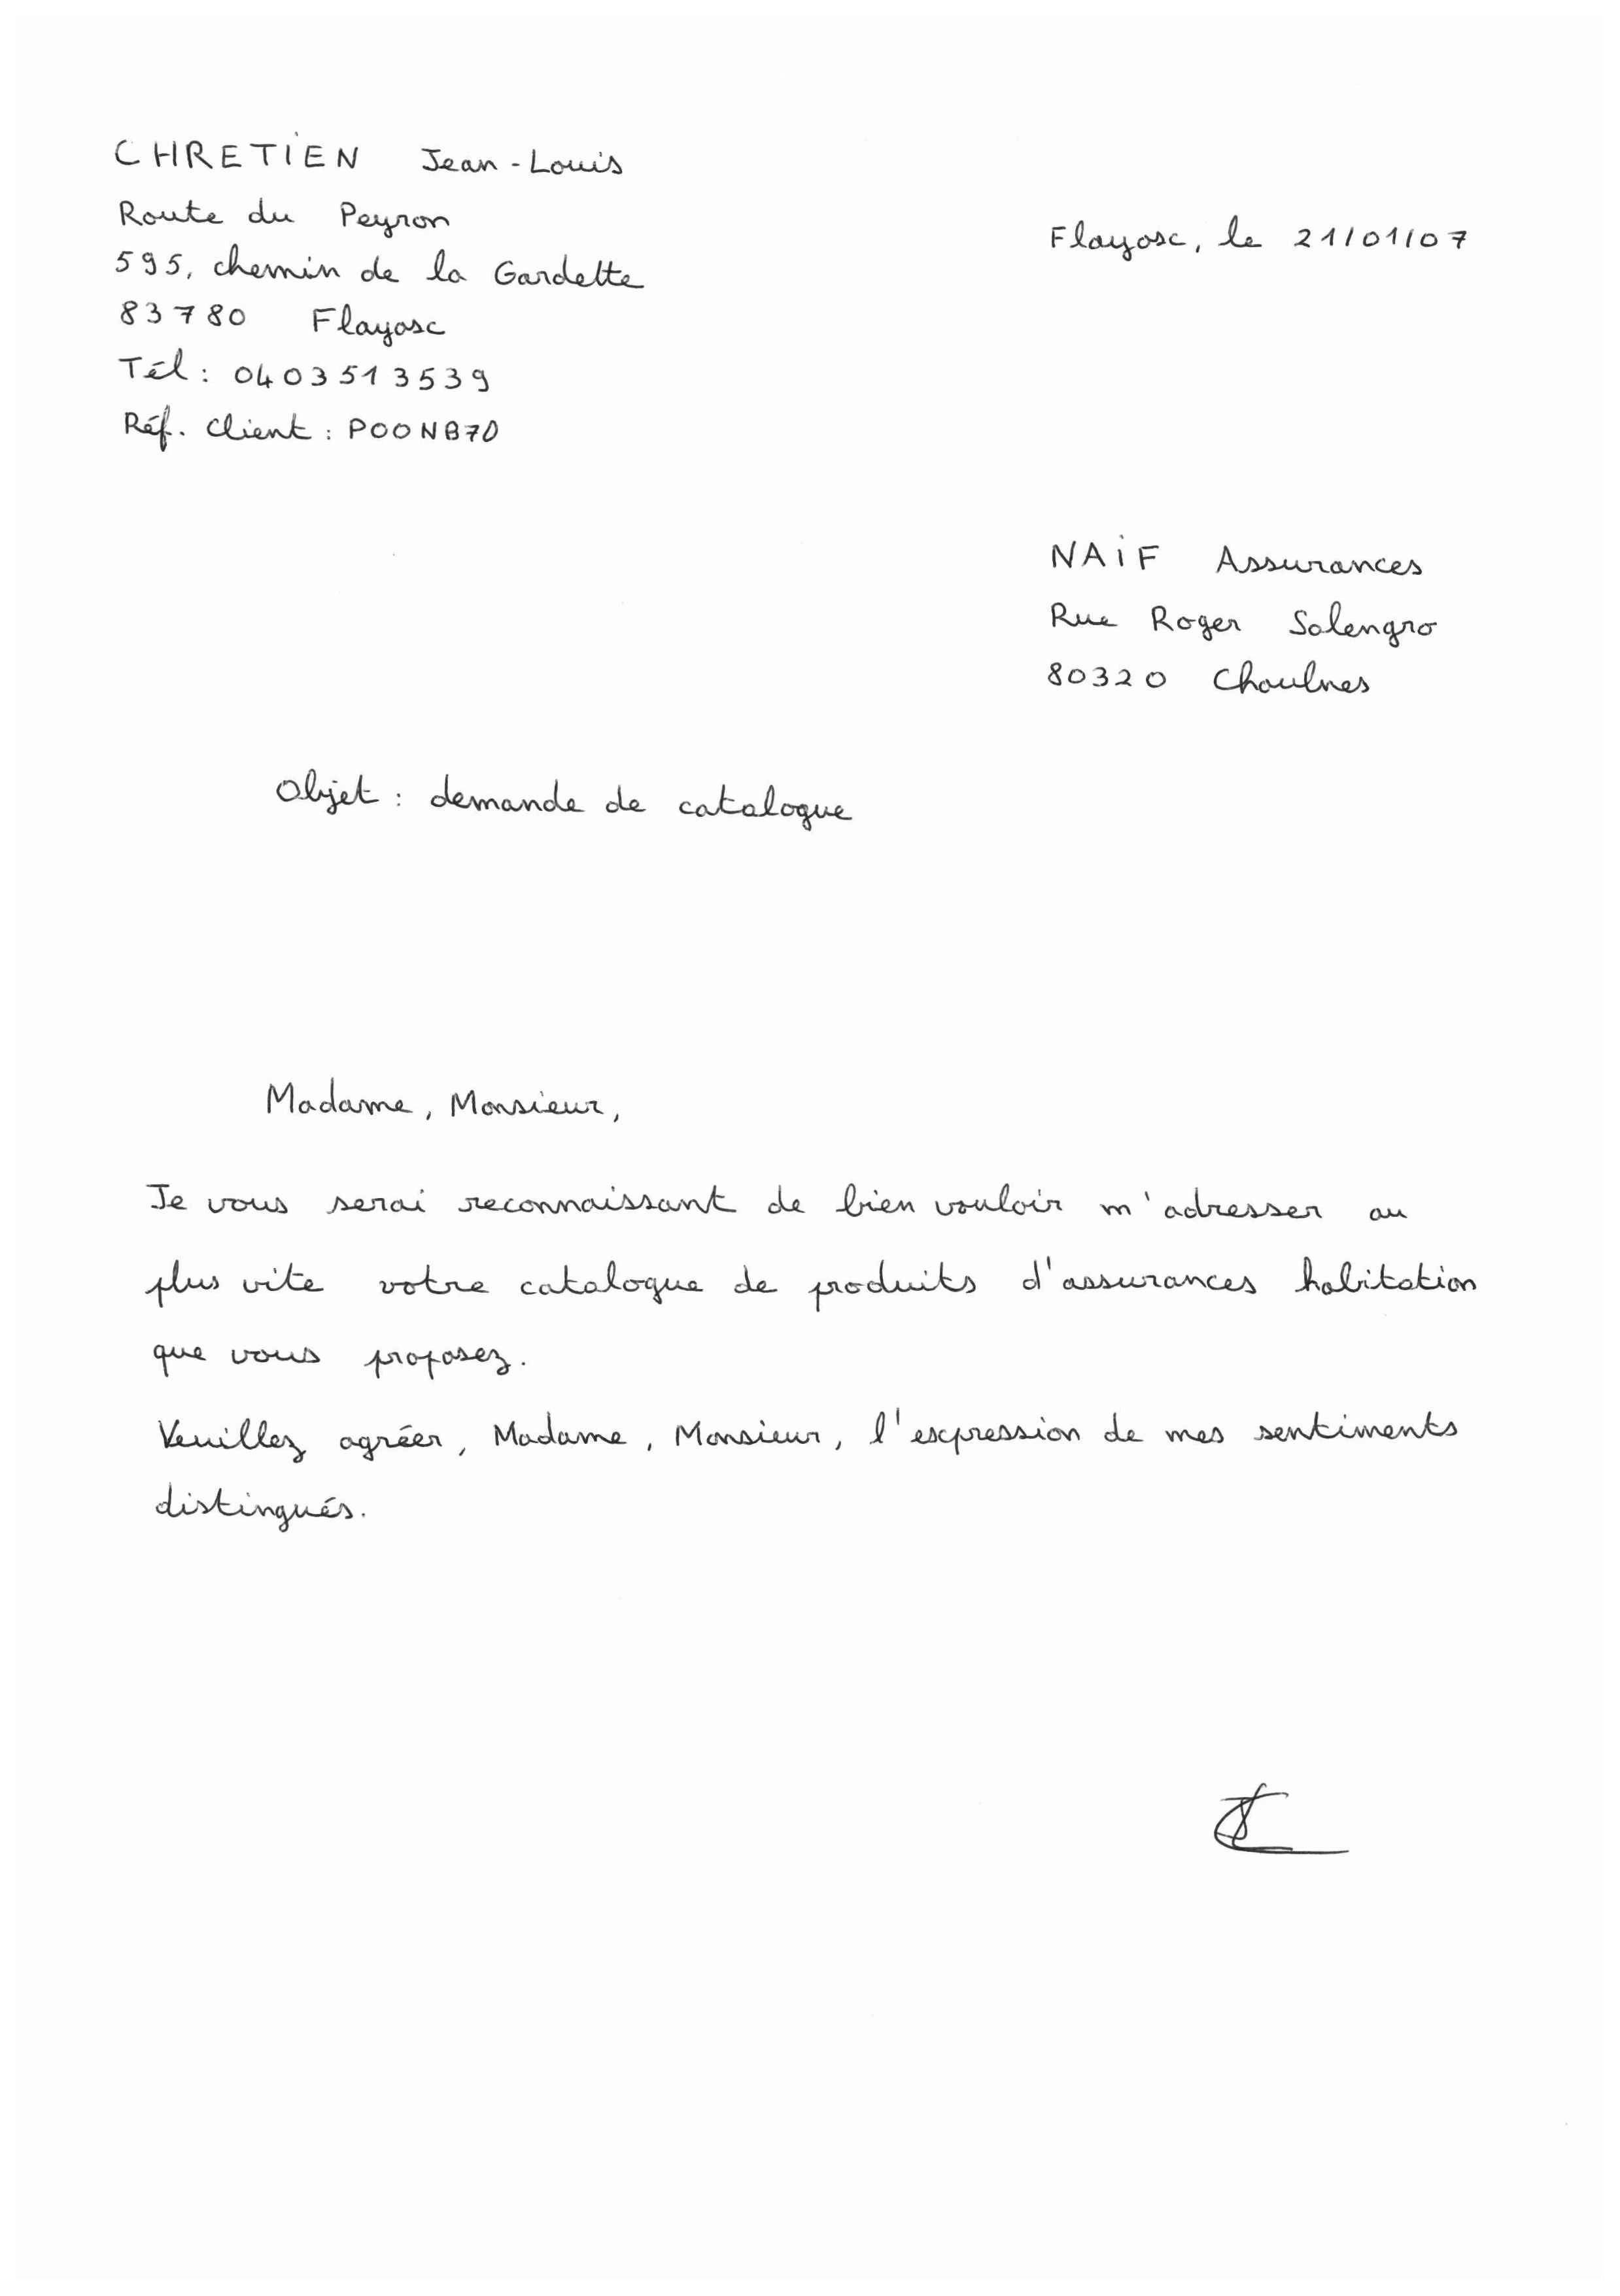 CHRETIEN Jean-Louis
Route du Peyron
595, chemin de la Gardette
83780 Flayosc
Tél : 0403513539
Réf. Client : POONB70
Flayosc, le 21/01/07
NAIF Assurances
Rue Roger Salengro
80320 Chaulnes
Objet : demande de catalogue
Madame, Monsieur,
Je vous serai reconnaissant de bien vouloir m'adresser au
plus vite votre catalogue de produits d'assurances habitation
que vous proposez.
Veuillez agréer, Madame, Monsieur, l'expression de mes sentiments
distingués.